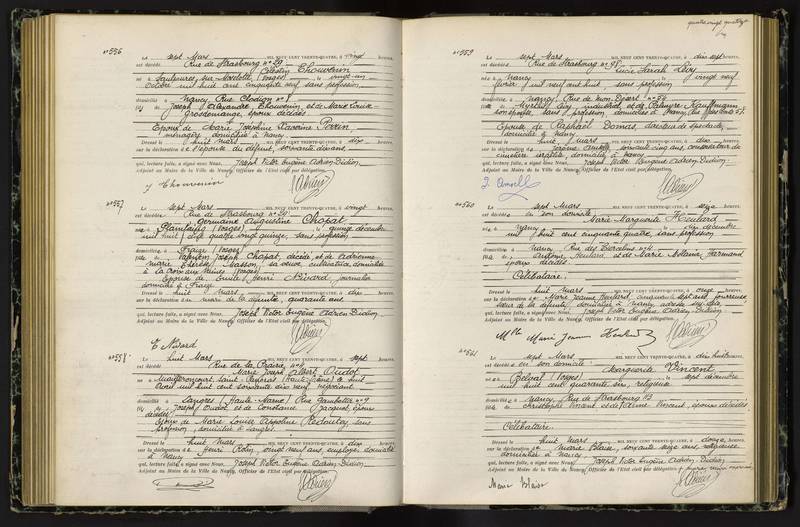 n° 556
Le sept Mars MIL NEUF CENT TRENTE-QUATRE, à vingt heures,
est décédé Rue de Strasbourg n°
Célestin Thouvenin
né à Saulxures, sur Moselotte (Vosges) le vingt-un
Octobre mil huit cent cinquante neuf, sans profession
domicilié à Nancy, Rue Clodion n°
fils de Joseph Alexandre Thouvenin, et de Marie Louise
Grosdemange, époux décédés.
Epoux de Marie Joséphine Perrin,
ménagère domiciliée à Nancy
Dressé le huit mars MIL NEUF CENT TRENTE-QUATRE, à dix heures,
sur la déclaration de l'épouse du défunt, soixante dix ans
qui, lecture faite, a signé avec Nous, Joseph Victor Eugène Adrien Didion,
Adjoint au Maire de la Ville de Nancy, Officier de l'Etat civil par délégation.
J Thouvenin
n° 557
Le sept Mars MIL NEUF CENT TRENTE-QUATRE, à vingt heures,
est décédée Rue de Strasbourg n°
Germaine Augustine Chapat
née à Plainfaing (Vosges) le quinze décembre
mil huit cent quatre vingt quinze, sans profession
domiciliée à Fraize (Vosges)
fille de Joseph Chapat, décédé, et de Adrienne
Marie Thérèse Masson, sa veuve, cultivatrice, domiciliée
à la Croix aux Mines (Vosges)
Epouse de Emile Henri Nivard journalier
domicilié à Fraize
Dressé le huit mars MIL NEUF CENT TRENTE-QUATRE, à dix heures,
sur la déclaration du mari de la défunte, quarante ans
qui, lecture faite, a signé avec Nous, Joseph Victor Eugène Adrien Didion,
Adjoint au Maire de la Ville de Nancy, Officier de l'Etat civil par délégation.
E Nivard
n° 558
Le huit Mars MIL NEUF CENT TRENTE-QUATRE, à sept heures,
est décédé Rue de la Prairie n°
Marie Joseph Albert Oudot
né à (Haute-Saône) le huit
Août mil huit cent soixante dix neuf, négociant
domicilié à Langres (Haute-Marne) Rue Gambetta n° 9
fils de Joseph Oudot et de Constance Jacquot, époux
décédés
Epoux de Marie Louise Appoline Redoutey, sans
profession, domiciliée à Langres.
Dressé le huit mars MIL NEUF CENT TRENTE-QUATRE, à dix heures,
sur la déclaration de Henri Robin, vingt neuf ans, employé, domicilié
à Nancy
qui, lecture faite, a signé avec Nous, Joseph Victor Eugène Adrien Didion,
Adjoint au Maire de la Ville de Nancy, Officier de l'Etat civil par délégation.
quatre vingt quatorze
n° 559
Le sept Mars MIL NEUF CENT TRENTE-QUATRE, à dix sept heures,
est décédée Rue de Strasbourg n°
Lucie Sarah Lévy
née à Nancy le vingt neuf
février mil neuf cent huit, sans profession
domiciliée à Nancy, Rue de Mon Désert n°
fille de Lévy, industriel, et de Palmyre Kauffmann
son épouse, sans profession, domiciliés à Nancy
Epouse de Raphaël Bomas, directeur de spectacle,
domicilié à Nancy
Dressé le huit mars MIL NEUF CENT TRENTE-QUATRE, à dix heures,
sur la déclaration de Jérôme soixante cinq ans, conservateur du
cimetière israélite, domicilié à Nancy
qui, lecture faite, a signé avec Nous, Joseph Victor Eugène Adrien Didion,
Adjoint au Maire de la Ville de Nancy, Officier de l'Etat civil par délégation.
n° 560
Le sept Mars MIL NEUF CENT TRENTE-QUATRE, à seize heures,
est décédée en son domicile
Marie Marguerite Heulard
née à Nancy le dix décembre
mil huit cent cinquante quatre, sans profession
domiciliée à Nancy, Rue des Tiercelins n°
fille de Antoine Heulard et de Marie Mélanie Harmand
époux décédés.
Célibataire.
Dressé le huit mars MIL NEUF CENT TRENTE-QUATRE, à onze heures,
sur la déclaration de Marie Jeanne Heulard, sept ans,
sœur de la défunte, domiciliée à Nancy, même adresse
qui, lecture faite, a signé avec Nous, Joseph Victor Eugène Adrien Didion,
Adjoint au Maire de la Ville de Nancy, Officier de l'Etat civil par délégation.
Mlle Marie Jeanne Heulard
n° 561
Le sept mars MIL NEUF CENT TRENTE-QUATRE, à dix huit heures,
est décédée en son domicile
Marguerite Vincent
née à Belval (Vosges) le sept décembre
mil huit cent quarante six, religieuse
domiciliée à Nancy, Rue de Strasbourg
fille de Christophe Vincent et de Vincent, époux décédés.
Célibataire.
Dressé le huit Mars MIL NEUF CENT TRENTE-QUATRE, à douze heures,
sur la déclaration de Marie Blaise, soixante seize ans, religieuse
domiciliée à Nancy
qui, lecture faite, a signé avec Nous, Joseph Victor Eugène Adrien Didion,
Adjoint au Maire de la Ville de Nancy, Officier de l'Etat civil par délégation
Marie Blaise